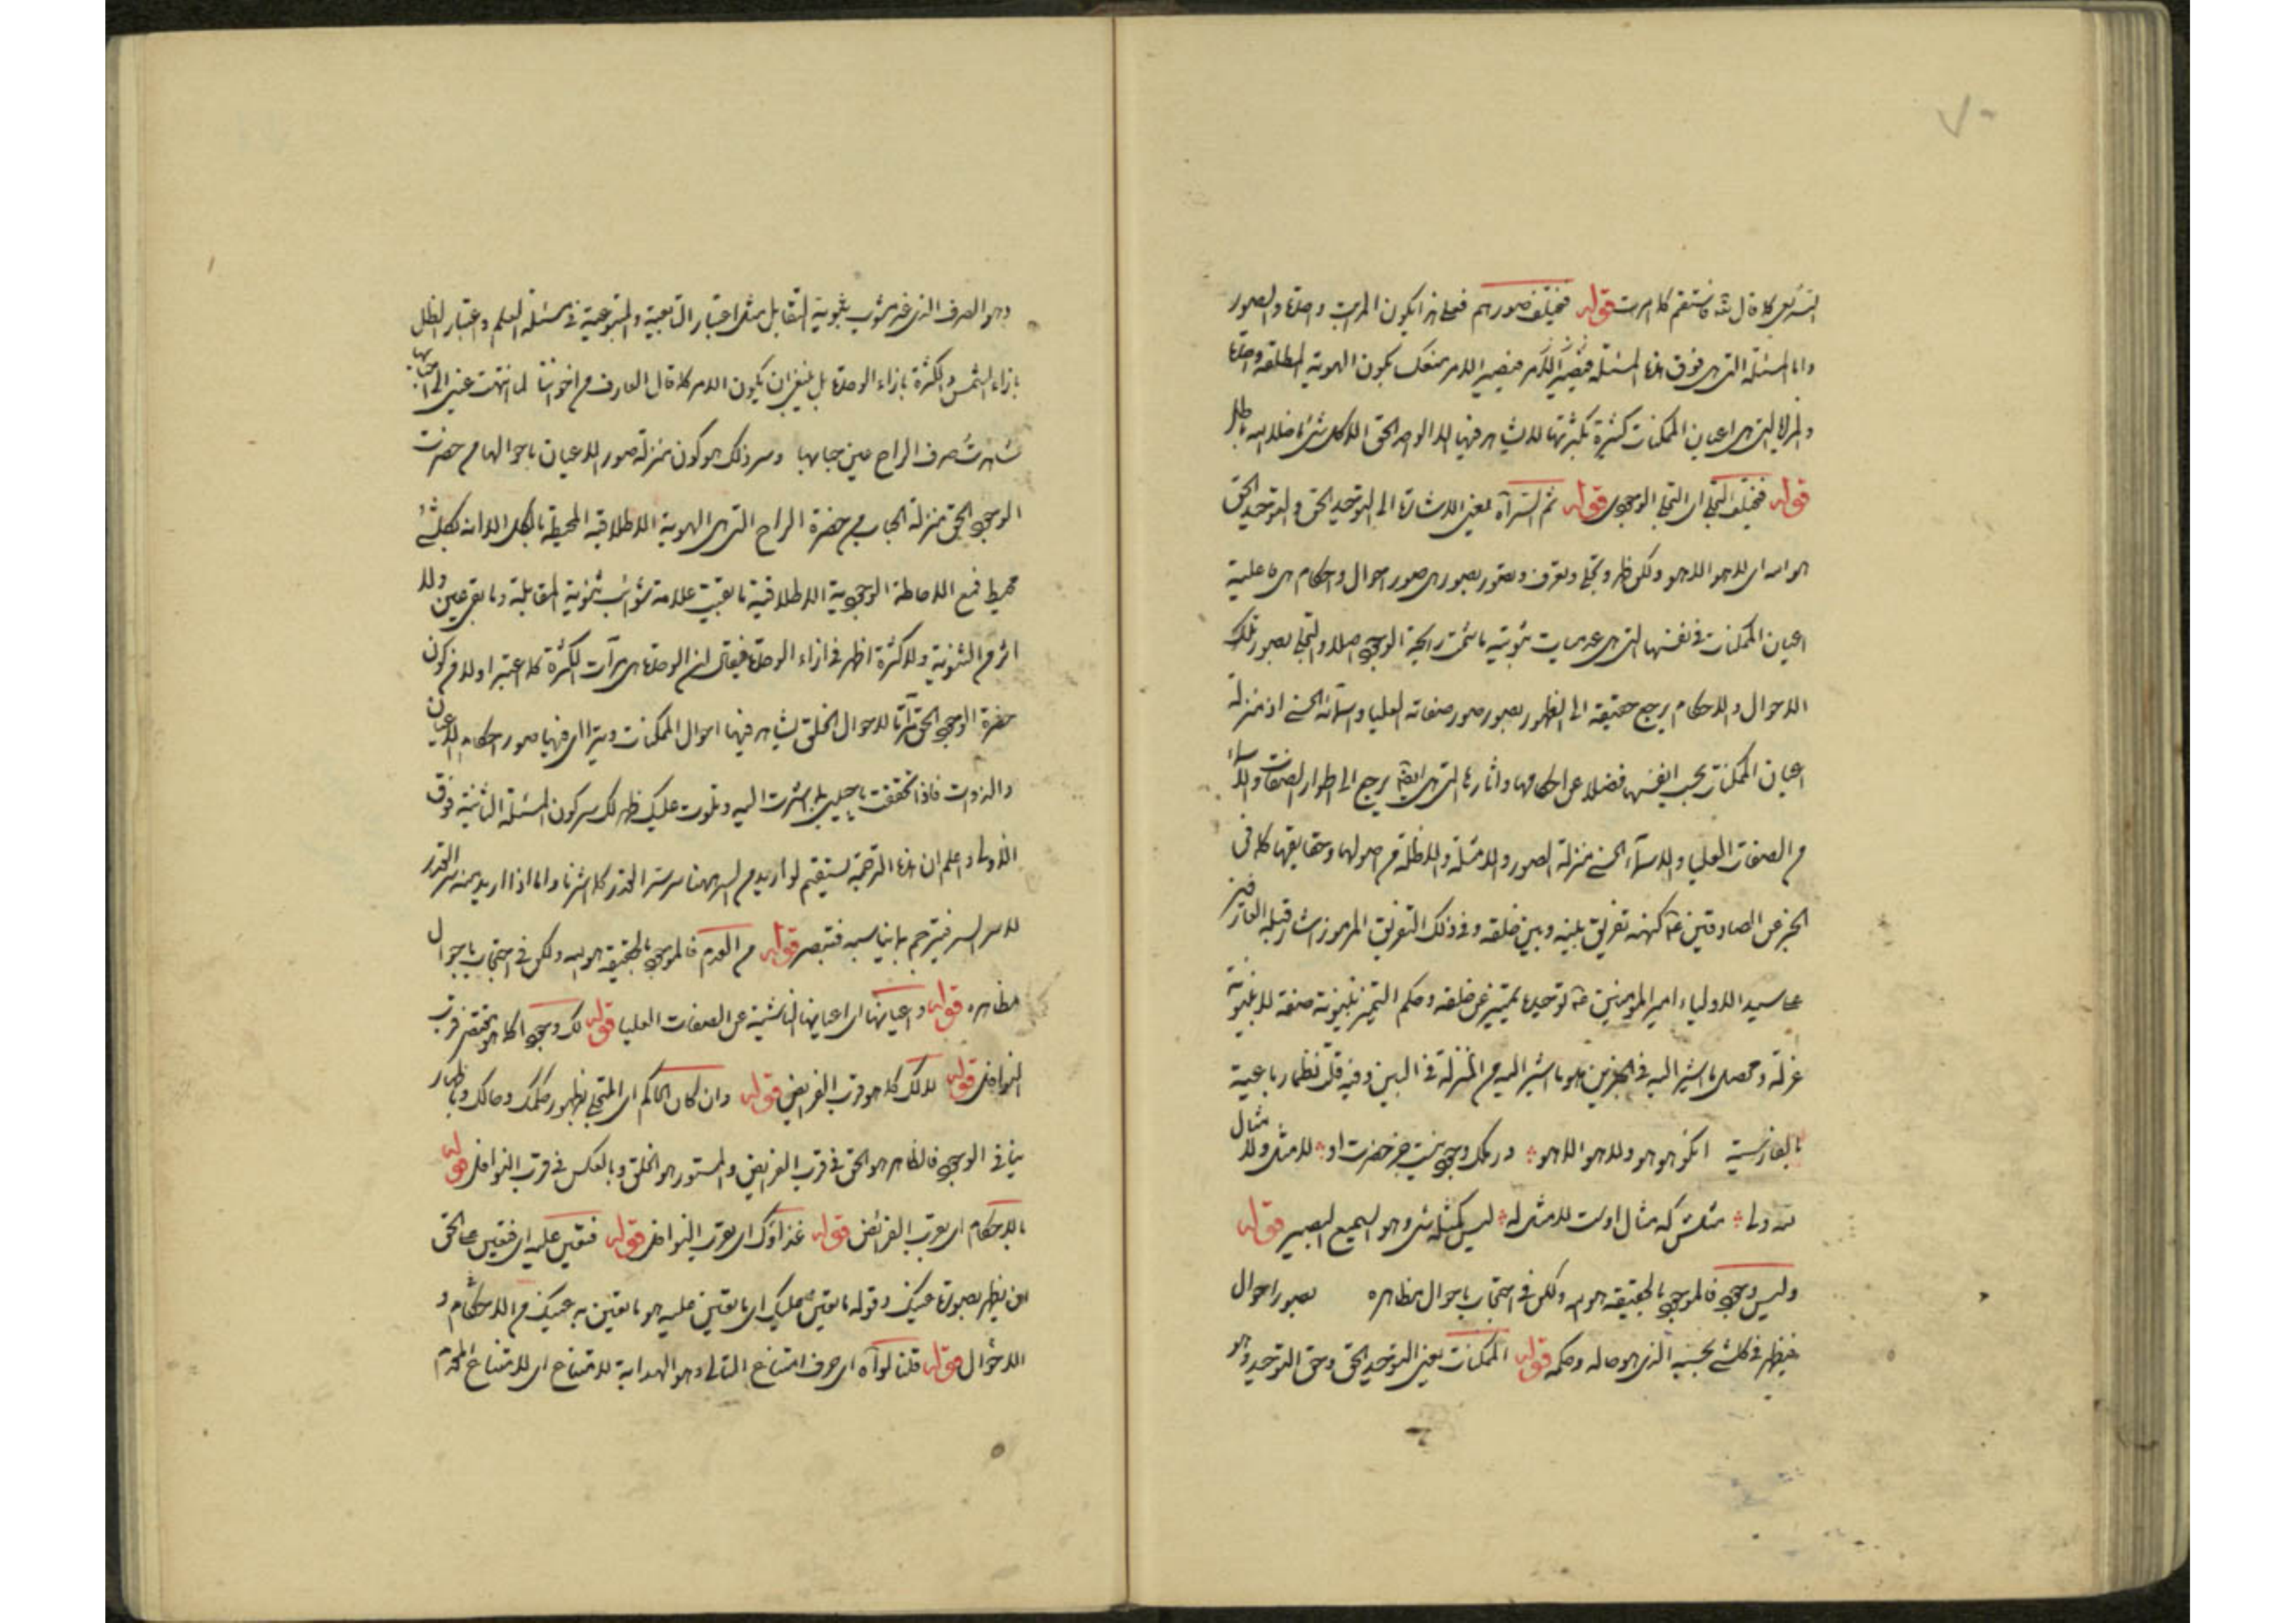 ۷۰
كما قال فاستقم كما امرت قوله فيختلف صورهم فعلى هذا يكون المرآت واحدة والصور
واما المسئلة التى هى فوق هذه المسئلة فيصير الامر منعكس بكون الهوية المطلقة واحدة
والمرايا التى هى اعيان الممكنات كثيرة بكثرتها لا يشاهد فيها الا الوجه الحق الا كل شئ ما خلا الله باطل
قوله فيختلف التجلى اى التجلى الوجودى قوله ثم السر آه يعنى الاشارة الى التوحيد الحق والتوحيد الحق
هو الله اى لا هو الا هو ولكن ظهر وتجلى وتعرف وتصور بصور هى صور احوال واحكام هى ما عليه
اعيان الممكنات فى نفسها التى هى عدميات ثبوتية ما شمت رايحة الوجود اصلا والتجلى بصور تلك
الاحوال والاحكام يرجع حقيقة الى الظهور بصور صور صفاته العليا واسمائه الحسنى اذ منزلة
اعيان الممكنات بحسب انفسها فضلا عن احكامها واثارها التى هى ايضا يرجع الى اطوار الصفات والاسماء
من الصفات العليا والاسماء الحسنى منزلة الصور والامثلة والاظلة من اصولها وحقايقها كما فى
الخبر عن الصادقين كنهه تفريق بينه وبين خلقه وفى ذلك التفريق المرموز اشار قبله العارفين
على سيد الاولياء امير المؤمنين توحيده تمييزه عن خلقه وحكم التمييز بينونة صفة لا بينونة
عزلة ومحصل ما اشير اليه فى الخبرين هو ما اشير اليه من المنزلة فى البين وفيه قلت نظما رباعية
بالفارسية انكو هو هو ولا هو الا هو در ملك وجود نيست جز حضرت او لا مثل ولا مثال
مثلش كه مثال اوست لا مثل له ليس كمثله شئ وهو السميع البصير قوله
وليس وجود فالموجود بالحقيقة هو الله ولكن فى احتجاب باحوال مظاهره بصور احوال
فيظهر فى كل شئ بحسبه الذى هو حاله وحكمه قوله الممكنات يعنى التوحيد الحق وحق التوحيد وهو
وهو الصرف الذى غير مشوب بثنوية التقابل مثل اعتبار التابعية والمتبوعية فى مسئلة العلم واعتبار الظل
بازاء الشمس والكثرة بازاء الوحدة بل ينبغى ان يكون الامر كما قال العارف من اخواننا لما انتهت عينى الى احبابها
شاهدت صرف الراح عين حبابها وسر ذلك هو كون منزلة صور الاعيان باحوالها من حضرت
الوجود الحق منزلة الحباب من حضرة الراح التى هى الهوية الاطلاقية المحيطة بالكل الا انه بكل شئ
محيط فمع الاحاطة الوجودية الاطلاقية ما بقيت علامة شوائب ثنوية المقابلة وما بقى عين ولا
اثر من الثنوية والاكثرة اظهر فى ازاء الوحدة فيقال ان الوحدة هى مرآت الكثرة كما اعتبر اولا من كون
حضرة الوجود الحق مرآتا لاحوال الخلق يشاهد فيها احوال الممكنات ويترااى فيها صور احكام الاعيان
والذوات فاذا تحققت يا حبيبى بما اشرت اليه وتلوت عليك ظهر لك سر كون المسئلة الثانية فوق
الاولى واعلم ان هذه الترجمة يستقيم لو اريد من السر ههنا سر سر القدر كما اشرنا واما اذا اريد منه سر القدر
لا سر السر فيترجم بما يناسبه فتبصر قوله من العدم فالموجود بالحقيقة هو الله ولكن فى احتجاب باحوال
مظاهره قوله واعيانها اى اعيانها الناشئة عن الصفات العليا قوله لك وجود كما هو مقتضى قرب
النوافل قوله لا لك كما هو قرب الفرايض قوله وان كان الحاكم اى المتجلى بظهور حكمك وحالك وباظهار
ما فى الوجود فالظاهر هو الحق فى قرب الفرايض والمستور هو الخلق وبالعكس فى قرب النوافل قوله
بالاحكام اى بقرب الفرائض قوله غذاؤك اى بقرب النوافل قوله فتعين عليه اى فتعين على الحق
ان يظهر بصورة عينك وقوله ما تعين عليك اى ما تعين عليه هو ما تعين به عينك من الاحكام و
الاحوال قوله قلنا لو آه اى حرف امتناع التالى وهو الهداية لامتناع اى لامتناع المقدم